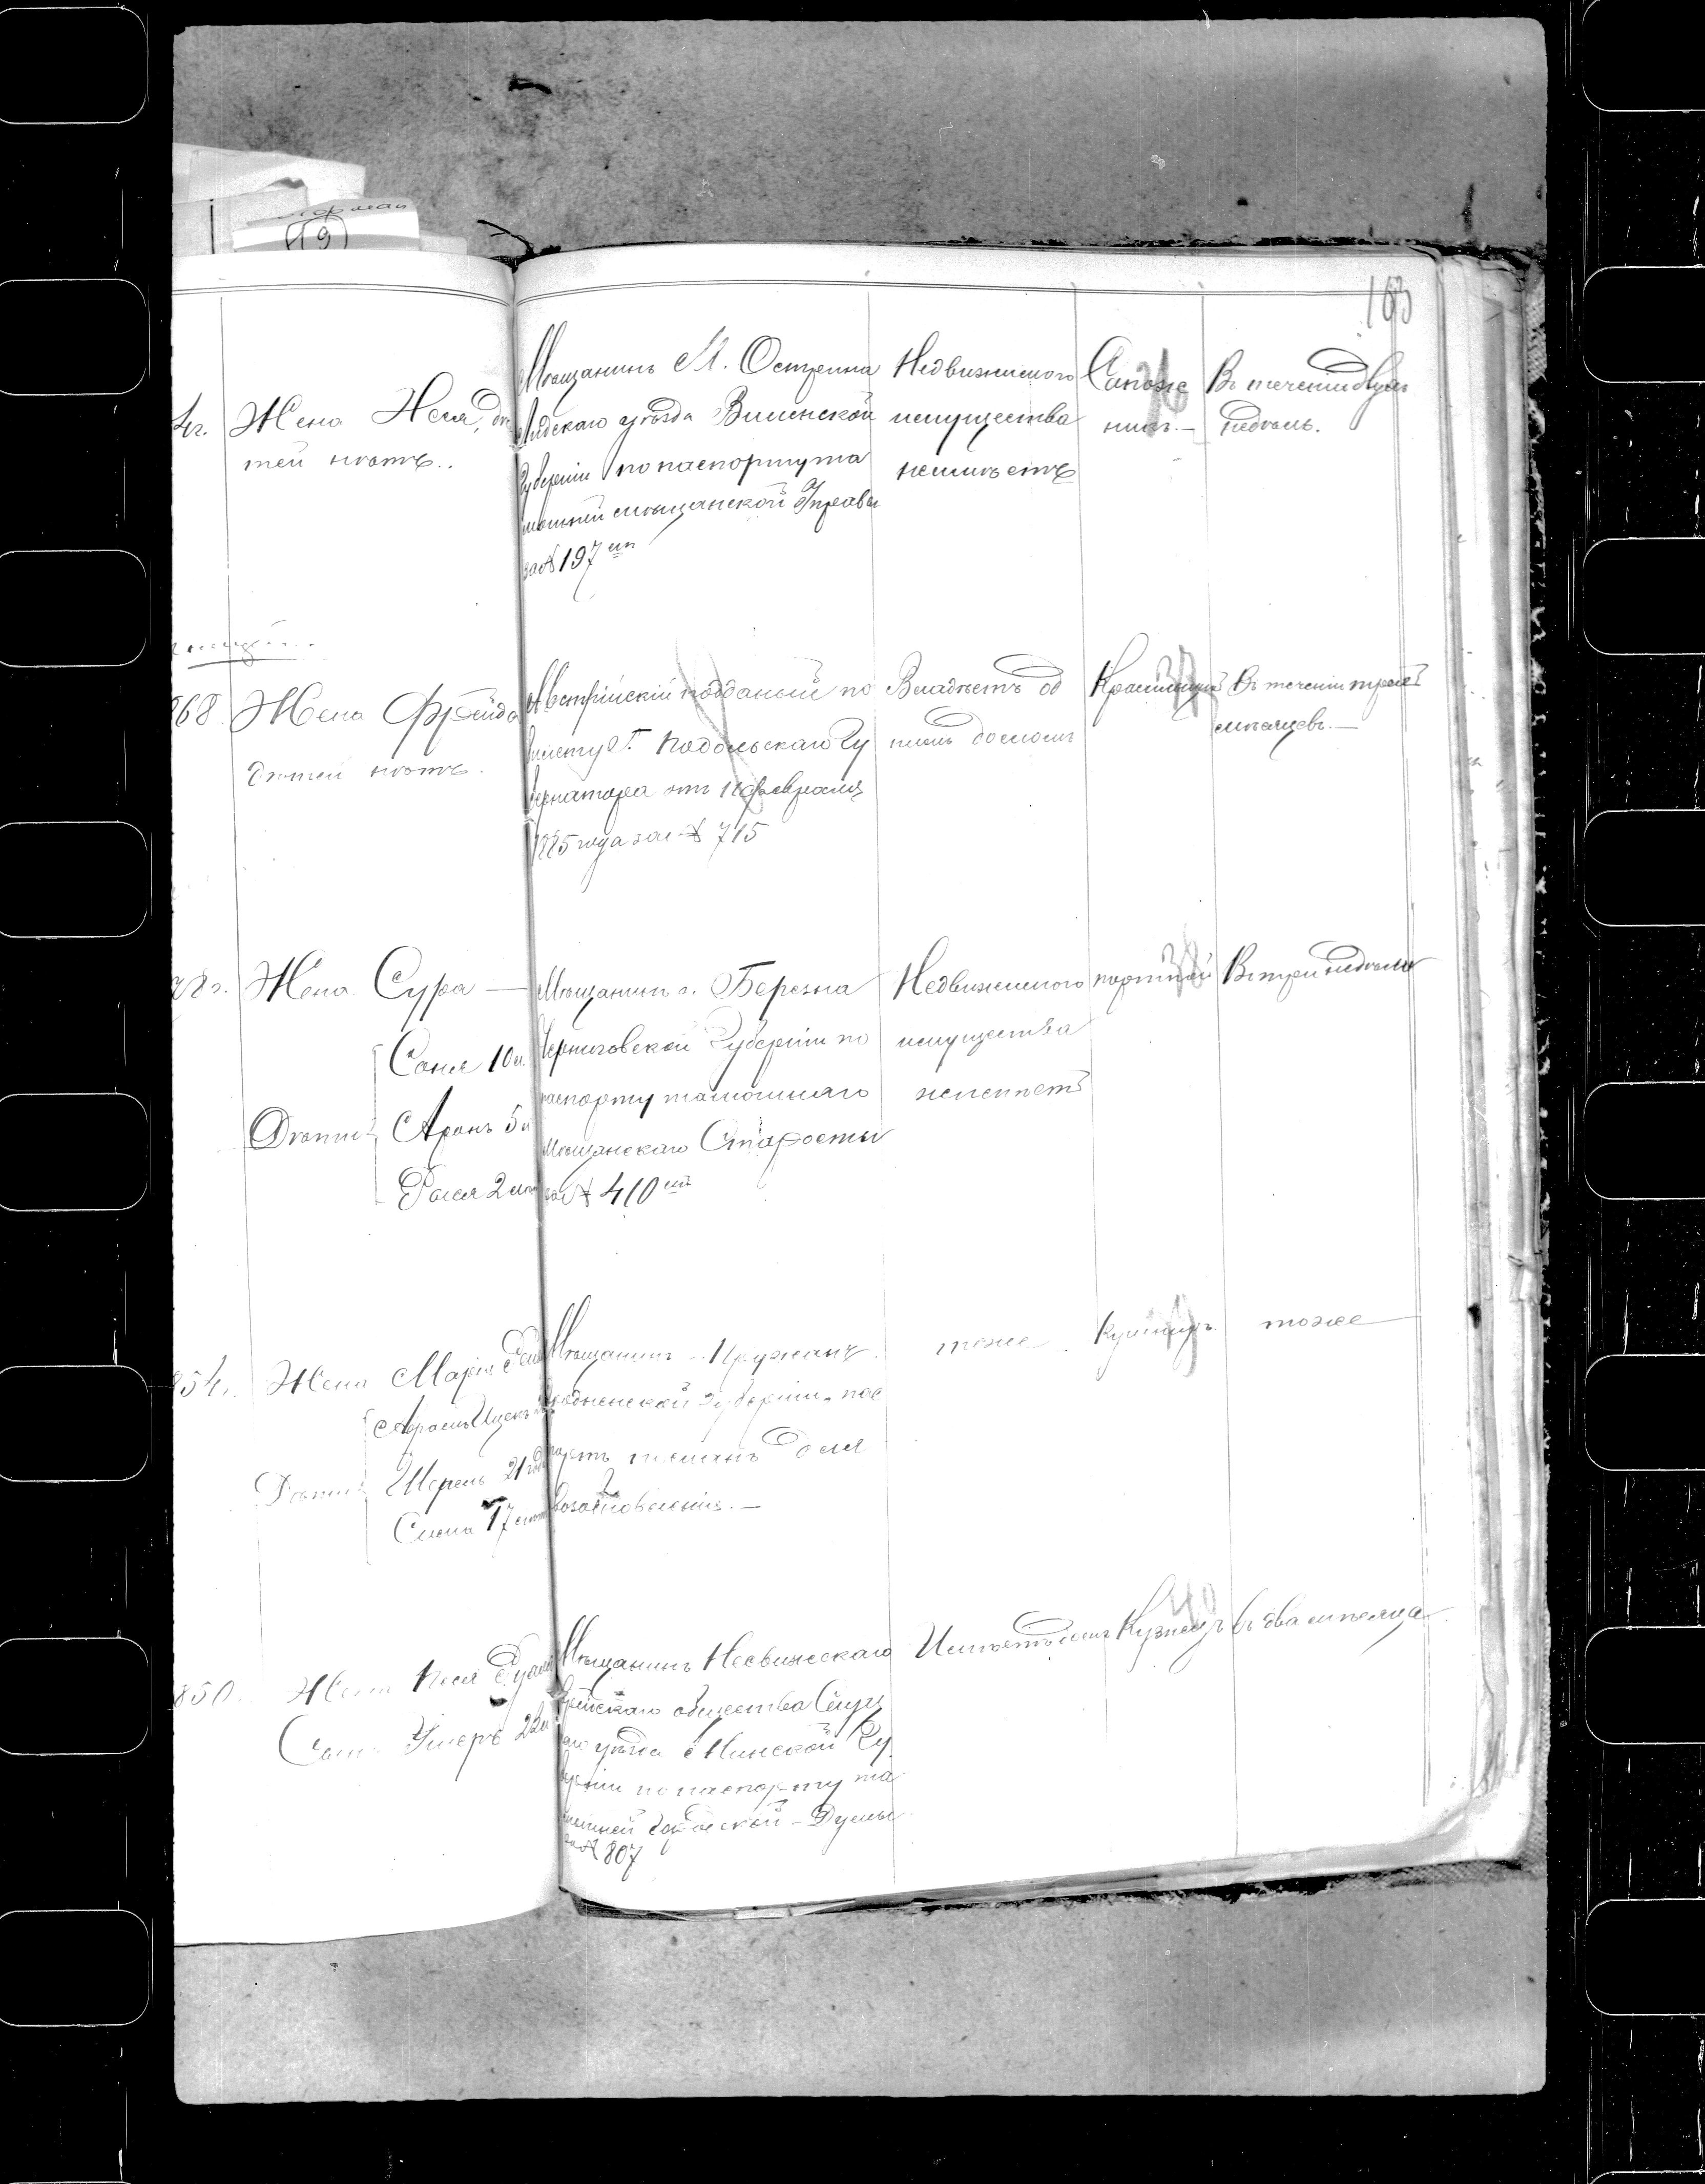 19
163
4г. Жена Неся, де
тей нѣтъ.
Мѣщанинъ М. Острына
Лидскаго уѣзда Виленской
Губерніи по паспорту та
мошней мѣщанской Управы
за № 197
Недвижимого
имущества
неимѣетъ
Сапож
никъ.—
В теченіи двухъ
недѣль.
868. Жена Фрейда
дѣтей нѣтъ.
Австрійскій подданый по
билету Г. Подольскаго Гу
бернатора отъ 11 февраля
1885 года за № 715
Владѣетъ од
нимъ домомъ
Красильщикъ
37
Въ теченіи трехъ
мѣсяцевъ.—
Жена Сура —
Дѣти
Соня 10 л.
Аронъ 5 л
Рася 2
Мѣщанинъ г. Березна
Черниговской Губерніи по
паспорту тамошняго
мѣщанскаго Старосты
за № 410
Недвижимого
имущества
неимѣетъ
портной
38
В три недѣли
854. Жена Марія
Дѣти
Абрамъ Ицекъ
Шерель 21
Сима 17
Мѣщанинъ Пружанъ
Гродненской губерніи, пас
портъ посланъ для
возобновленія.—
тоже
Кушнир
39
тоже
850. Жена Песя
Сынъ Умеръ 22
Мѣщанинъ Несвижскаго
Еврейскаго общества Слуц
каго уѣзда Минской Гу
берніи по паспорту та
мошней Городской Думы
за № 807
Кузнецъ
40
в два мѣсяца